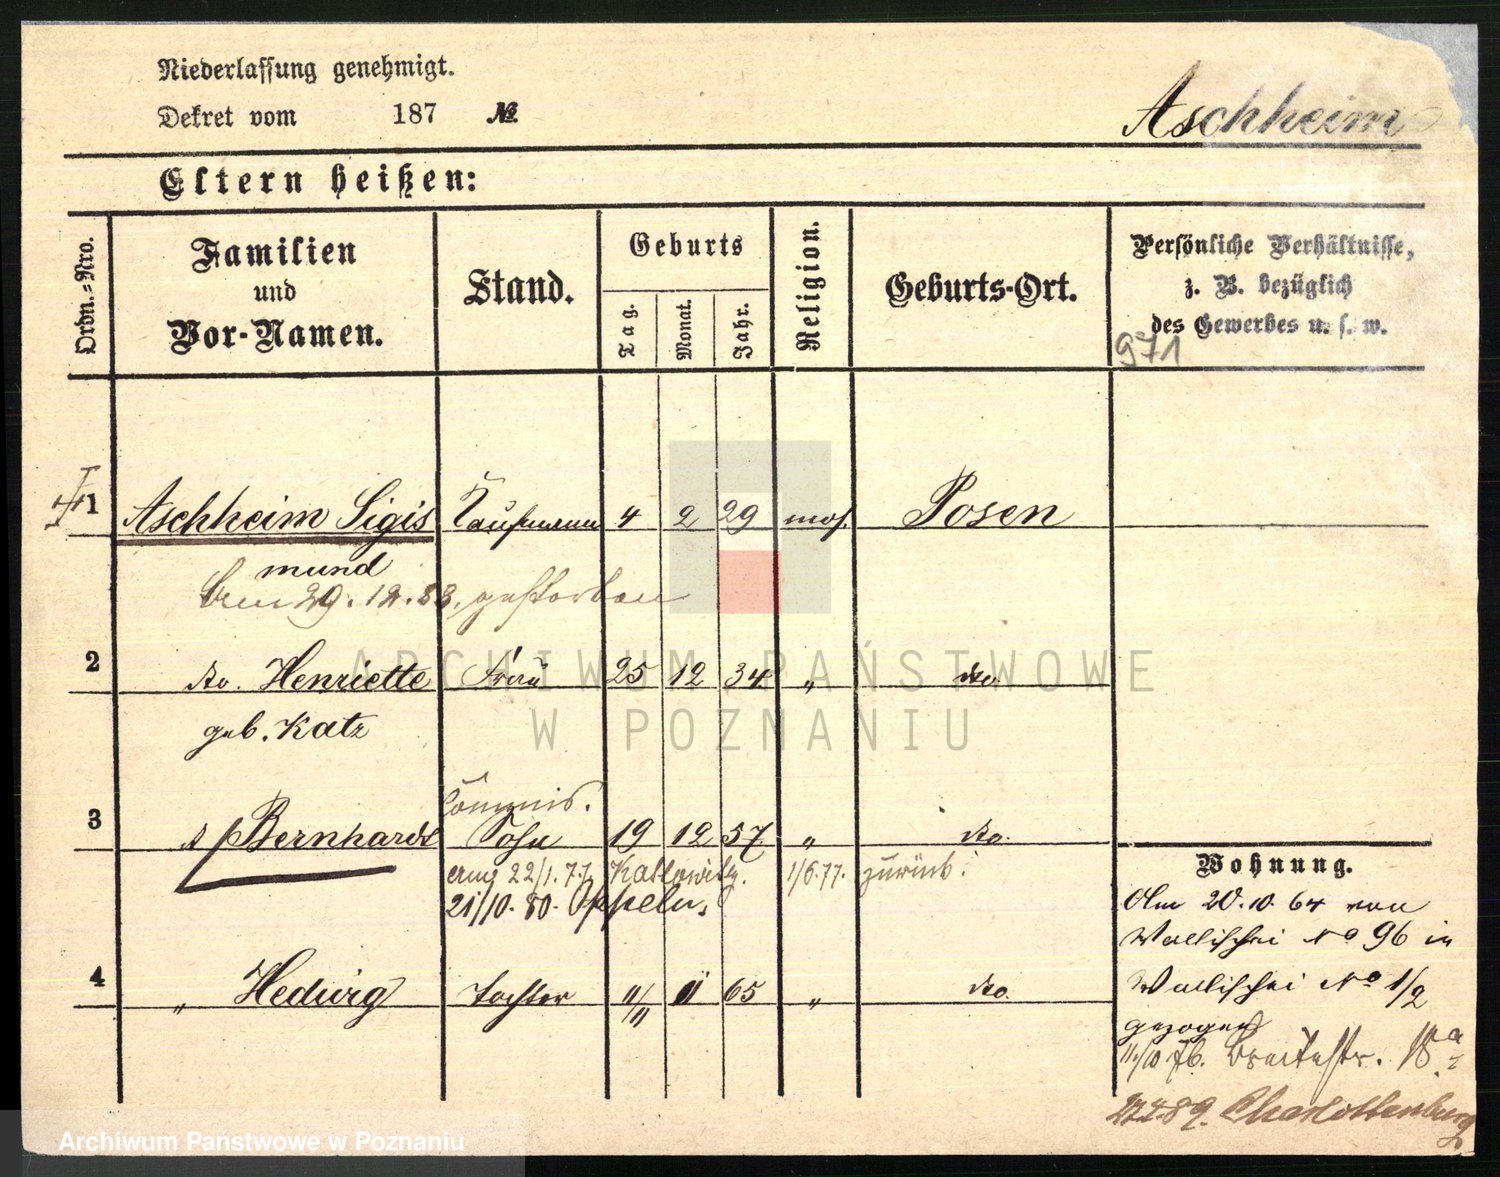 Niederlassung genehmigt.
Dekret vom 187 №
Aschheim
Eltern heißen:
Ordn.=Nro.
Familien
und
Vor-Namen.
Stand.
Geburts
Tag.
Monat.
Jahr.
Religion.
Geburts-Ort.
Persönliche Verhältnisse,
z. B. bezüglich
des Gewerbes u. s. w.
971
1 Aschheim Sigis Kaufmann 4 2 29 mos. Posen
mund
den 29. 12. 83. gestorben
2 do. Henriette Frau 25 12 34 " do.
geb. Katz
Commis.
3 Bernhardt Sohn 19 12 57 " do.
22/1. 77 Kattowitz. 1/6. 77. zurück.
21/10. 80. Oppeln.
4 " Hedwig Tochter 11/11 11 65 " do.
Wohnung.
Am 20. 10. 64 von
Wallischei No 96 in
Wallischei No 1/2
gezogen
11/10 76. Breitestr. 18a
89. Charlottenburg
ARCHIWUM PAŃSTWOWE
W POZNANIU
Archiwum Państwowe w Poznaniu